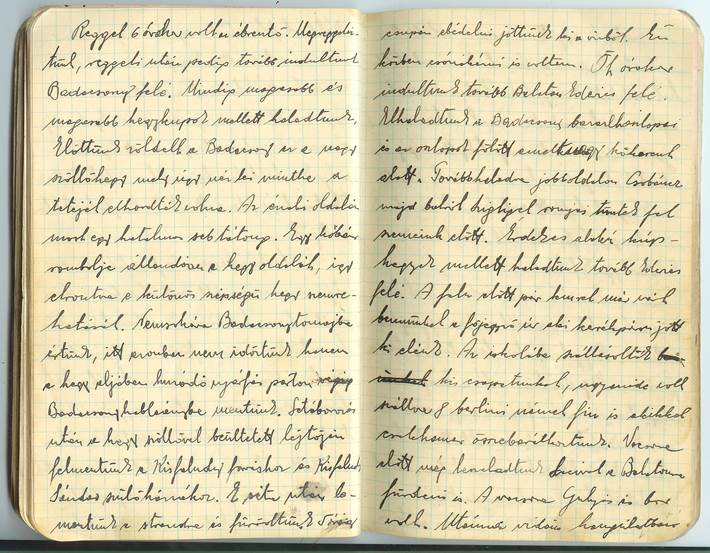 Reggel 6 órakor volt az ébresztő. Megreggeliz-
tünk, reggeli után pedig tovább indultunk
Badacsony felé. Mindig magasabb és
magasabb hegykúpok mellett haladtunk,
Előttünk zöldellt a Badacsony ez a nagy
szőllőhegy mely úgy néz ki mintha a
tetejét elhordták volna. Az északi oldalán
most egy hatalmas seb tátong. Egy kőbánya
rombolja állandóan a hegy oldalát, így
elrontva a különös szépségű hegy nemes
hatását. Nemsokára Badacsonytomajba
értünk, itt azonban nem időztünk hanem
a hegy aljában húzódó nyárfás parton
Badacsonylábdihegyre mentünk.
után a hegy szőllővel beültetett lejtőjén
felmentünk a Kisfaludy forráshoz és Kisfaludy
Sándor szülőházához. E séta után le-
mentünk a strandra és fürödtünk
csupán ebédelni jöttünk ki a vízből. Én
közben csónakázni is voltam. Öt órakor
indultunk tovább Balaton Ederics felé.
Elhaladtunk a Badacsony bazaltoszlopai
és az oszlopok fölött emelt kőkereszt
alatt. Továbbhaladva jobboldalon Csobánc
majd balról Szigliget romjai tűntek fel
szemeink előtt. Érdekes alakú kúp-
hegyek mellett haladtunk tovább Ederics
felé. A falu előtt pár km-rel már várt
bennünket a főjegyző úr aki kerékpáron jött
ki elénk. Az iskolába szállásoltuk
kis csapatunkat, ugyanide volt
szállva 8 berlini német fiú is akikkel
csakhamar összebarátkoztunk. Vacsora
előtt még leszaladtunk a Balatonra
fürdeni is. A vacsora Gulyás és bor
volt. Utána vidám hangulatban